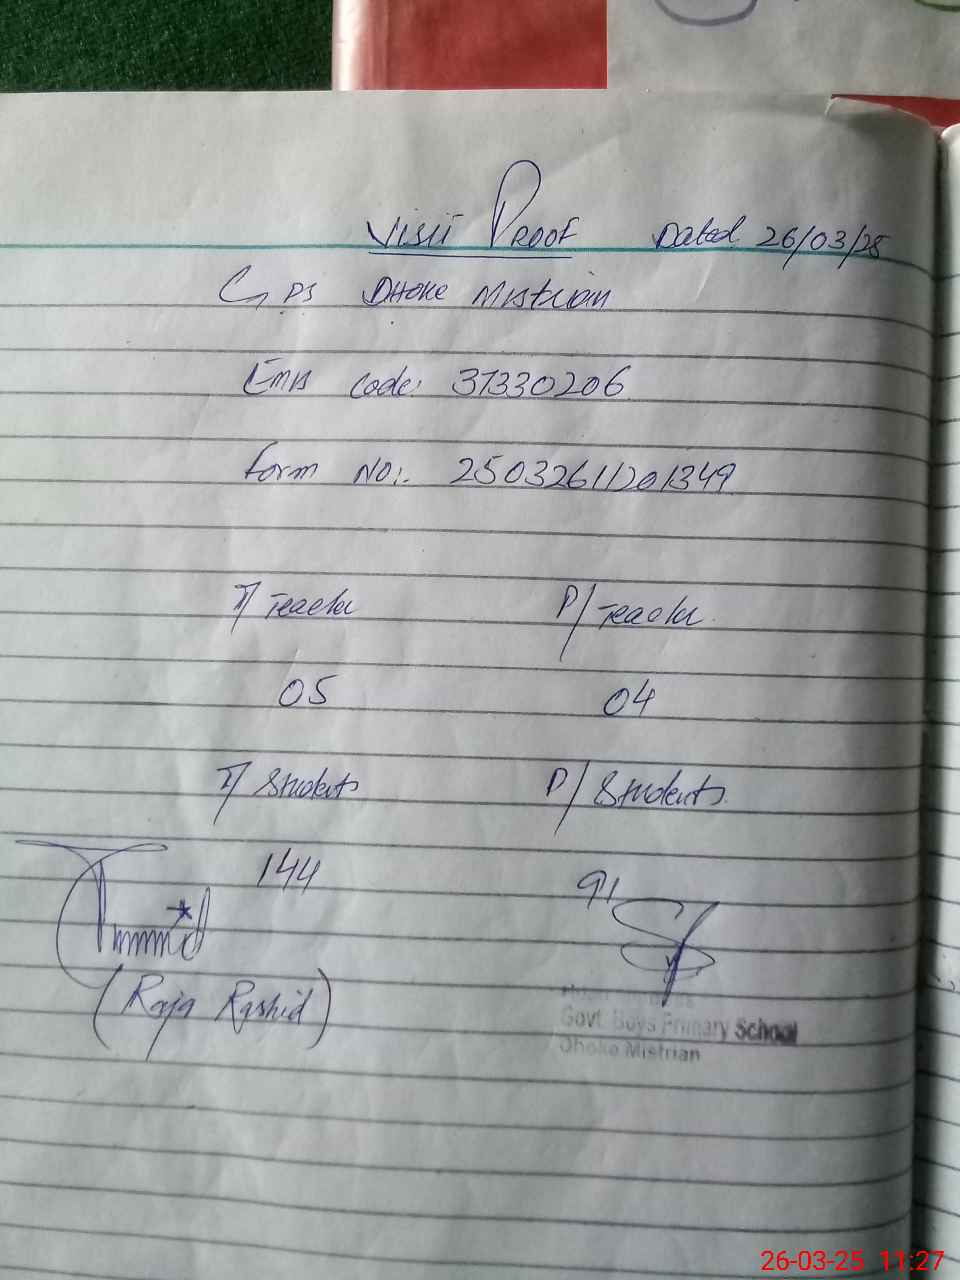 Visit Proof Dated: 26/03/25
GPS Dhoke Mistrian
Emis Code: 37330206
Form No:. 25032611201349
T/Teacher P/Teacher
05 04
T/Students P/Students
144 91
(Raja Rashid)
Govt. Boys Primary School
Dhoke Mistrian
26-03-25 11:27